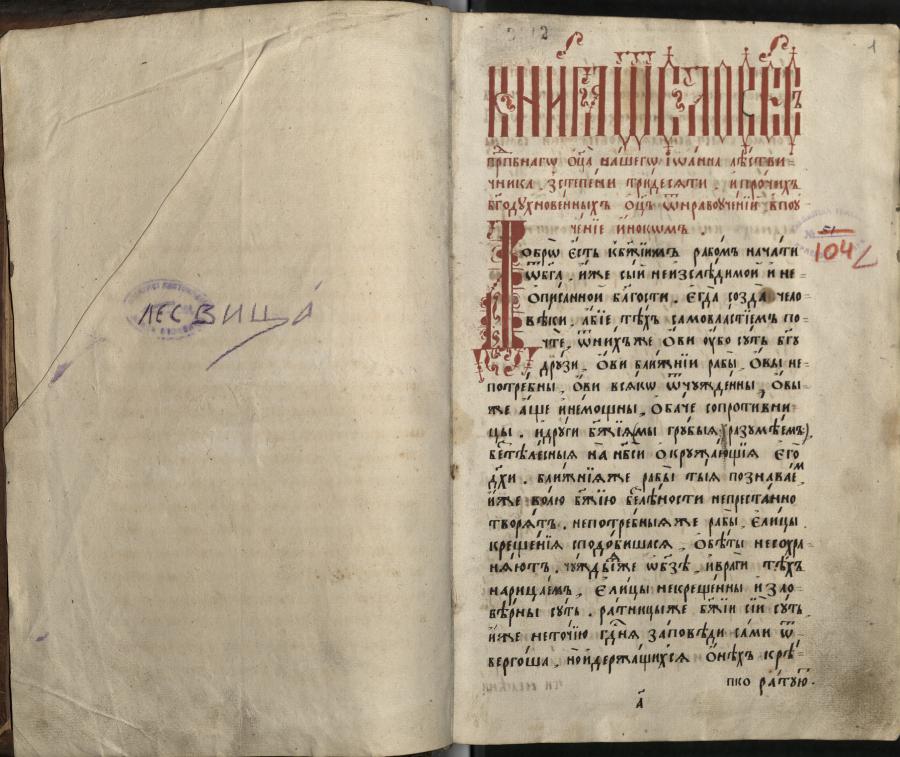 лесвица
1
51
104
КНИГА
прпбнагѡ ѻц҃а нашегѡ іѡанна лѣстви=
чника . з степени тридесяти . и прочихъ
бг҃одухновенныхъ ѻц҃ъ ѿ нравоученій . в поу=
ченїе инокѡмъ .
Добрѡ єсть к бж҃їимъ рабомъ начати
ѿ бг҃а . иже сый неизслѣдимой и не=
ѻписанной бл҃гости . єгда созда чело=
вѣки . абїе тѣхъ самовластїемъ по=
чте, ѿ нихъже ѻви оубо суть бг҃у
друзи . ѻви ближнїи рабы . ѻвы не=
потребны , ѻви всякѡ ѿчужденны , ѻвы
же аще и немощны , ѻбаче сопротивни=
цы . и други бж҃їя (мы грубыя разумѣемъ)
безтѣлесныя на нб҃си ѻкружающїя єго
дх҃и . ближнїяже рабы тыя познаваем
иже волю бж҃їю непрестанно
творятъ . непотребныяже рабы . єлицы
крещенїя сподобишася , ѻбѣты несохра=
няютъ . чуждыяже ѿ бг҃а , и враги тѣхъ
нарицаемъ , єлицы некрещенны и зло=
вѣрны суть . ратницыже бж҃їи сїй суть
иже неточїю гд҃ня заповѣди сами ѿ=
вергоша , но и держащихся ѻнѣхъ крѣ=
пко ратую .
а҃